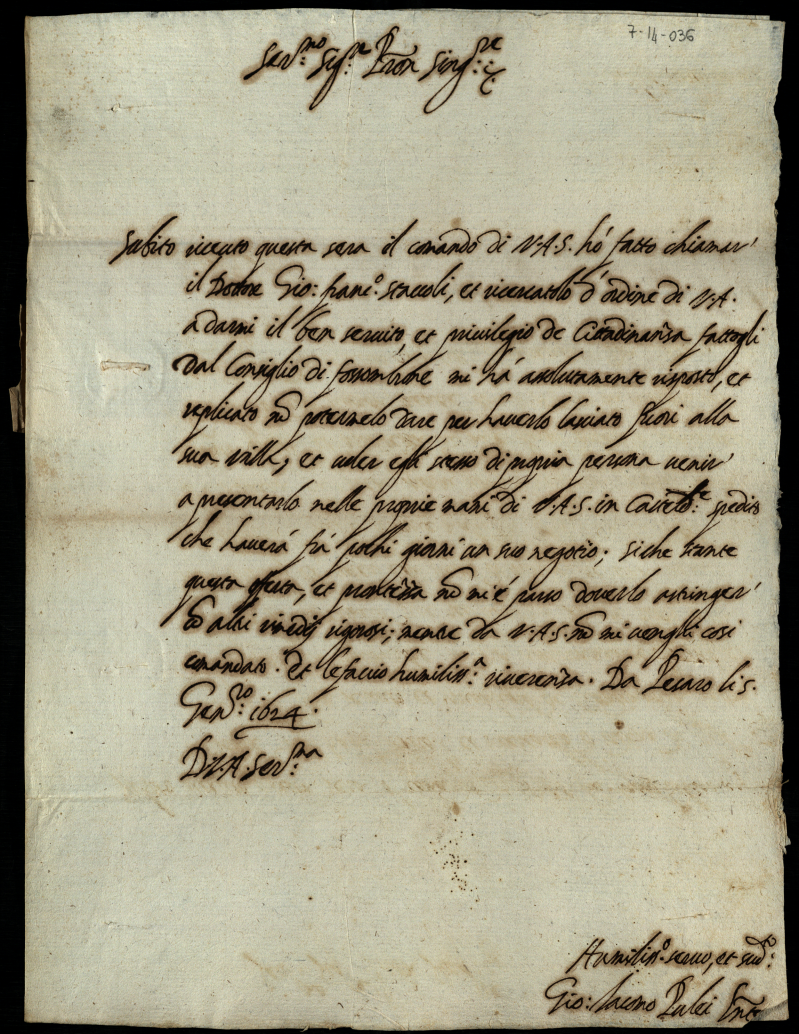 7-14-036
Ser:mo Sig:re Pron Sing:re &
Subito riceuto questa sera il comando di V.A.S. hò fatto chiamar'
il Dottore Gio: Franc:o Staccoli, et ricercatolo d'ordine di V.A.
a darmi il ben seruito, et priuilegio de Cittadinanza fattogli
dal Consiglio di fossombrone mi hà assolutamente risposto, et
replicato nõ potermelo dare per hauerlo lasciato fuori alla
sua villa, et uoler egli stesso di propria persona uenir'
a presentarlo nelle proprie mani di V.A.S. in Casteld:e spedito
che hauerà frà pochi giorni un suo negotio; siche stante
questa offerta, et prontezza nõ mi é parso douerlo astringer'
cõ altri rimedij rigorosi; mentre da V.A.S. nõ mi uenghi cosi
comandato. Et le faccio humiliss:a riuerenza. Da Pesaro li 5.
Gen:ro 1624.
D.V.A. Ser:ma
Humiliss:o seruo, et sud:o
Gio: Iacomo